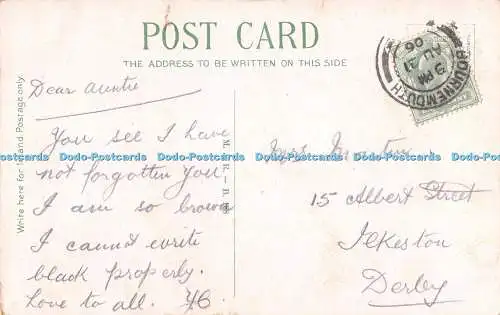 POST CARD
THE ADDRESS TO BE WRITTEN ON THIS SIDE
Write here for Inland Postage only.
BOURNEMOUTH
9 PM
AU 31
06
Dear Auntie
You see I have
not forgotten you
I am so brown
I cannot write
black properly.
Love to all.
Mrs
15 Albert Street
Ilkeston
Derby
Dodo-Postcards Dodo-Postcards Dodo-Postcards Dodo-Postcards Dodo-Postcards